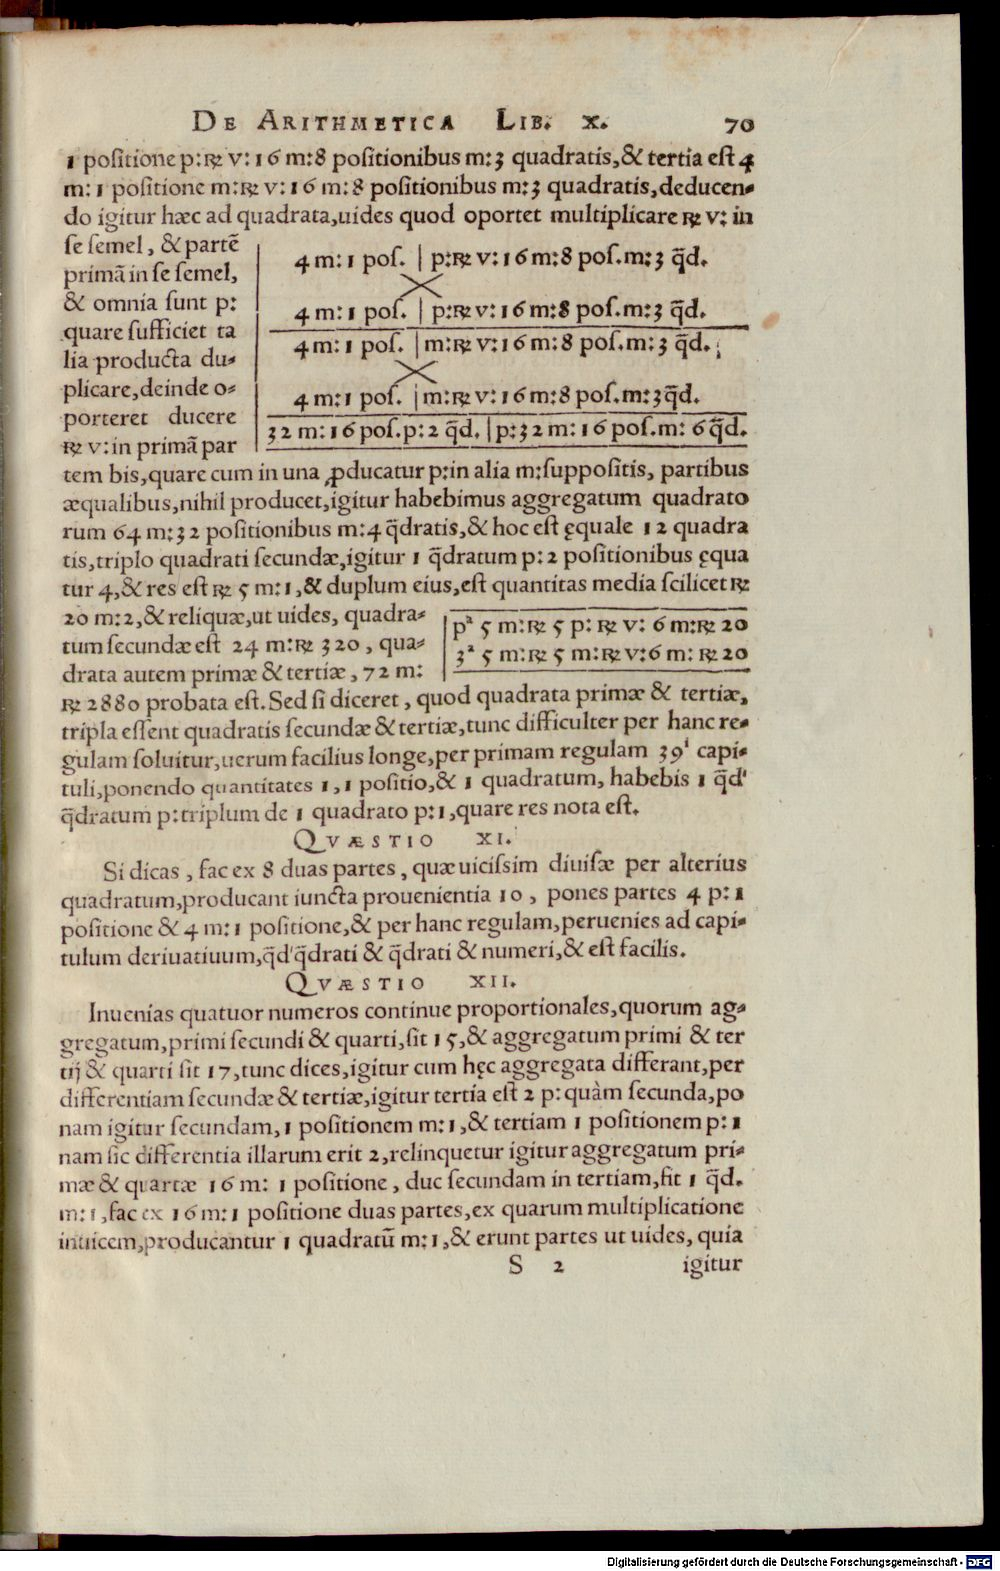 DE ARITHMETICA LIB. X. 70
1 positione p:℞ v:16 m:8 positionibus m:3 quadratis,& tertia est 4
m:1 positione m:℞ v:16 m:8 positionibus m:3 quadratis,deducen-
do igitur hæc ad quadrata,uides quod oportet multiplicare ℞ v: in
se semel, & partē
primā in se semel,
& omnia sunt p:
quare sufficiet ta
lia producta du-
plicare,deinde o-
porteret ducere
℞ v:in primā par
4 m:1 pos. | p:℞ v:16 m:8 pos.m:3 q̄d.
4 m:1 pos. | p:℞ v:16 m:8 pos.m:3 q̄d.
4 m:1 pos. | m:℞ v:16 m:8 pos.m:3 q̄d.
4 m:1 pos. | m:℞ v:16 m:8 pos.m:3 q̄d.
32 m:16 pos.p:2 q̄d. | p:32 m:16 pos.m: 6 q̄d.
tem bis,quare cum in una ꝓducatur p:in alia m:suppositis, partibus
æqualibus,nihil producet,igitur habebimus aggregatum quadrato
rum 64 m:32 positionibus m:4 q̄dratis,& hoc est ęquale 12 quadra
tis,triplo quadrati secundæ,igitur 1 q̄dratum p:2 positionibus ęqua
tur 4,& res est ℞ 5 m:1,& duplum eius,est quantitas media scilicet ℞
20 m:2,& reliquæ,ut uides, quadra-
tum secundæ est 24 m:℞ 320, qua-
drata autem primæ & tertiæ, 72 m:
pᵃ 5 m:℞ 5 p: ℞ v: 6 m:℞ 20
3ᵃ 5 m:℞ 5 m:℞ v:6 m: ℞ 20
℞ 2880 probata est. Sed si diceret, quod quadrata primæ & tertiæ,
tripla essent quadratis secundæ & tertiæ,tunc difficulter per hanc re-
gulam soluitur,uerum facilius longe,per primam regulam 39ⁱ capi-
tuli,ponendo quantitates 1,1 positio,& 1 quadratum, habebis 1 q̄d'
q̄dratum p:triplum de 1 quadrato p:1,quare res nota est.
QVÆSTIO XI.
Si dicas, fac ex 8 duas partes, quæ uicissim diuisæ per alterius
quadratum,producant iuncta prouenientia 10, pones partes 4 p:1
positione & 4 m:1 positione,& per hanc regulam,peruenies ad capi-
tulum deriuatiuum,q̄d'q̄drati & q̄drati & numeri,& est facilis.
QVÆSTIO XII.
Inuenias quatuor numeros continue proportionales,quorum ag-
gregatum,primi secundi & quarti,sit 15,& aggregatum primi & ter
tij & quarti sit 17,tunc dices,igitur cum hęc aggregata differant,per
differentiam secundæ & tertiæ,igitur tertia est 2 p:quàm secunda,po
nam igitur secundam,1 positionem m:1,& tertiam 1 positionem p:1
nam sic differentia illarum erit 2,relinquetur igitur aggregatum pri-
mæ & quartæ 16 m: 1 positione, duc secundam in tertiam,fit 1 q̄d.
m:1,fac ex 16 m:1 positione duas partes,ex quarum multiplicatione
inuicem,producantur 1 quadratū m:1,& erunt partes ut uides, quia
S 2 igitur
Digitalisierung gefördert durch die Deutsche Forschungsgemeinschaft - DFG